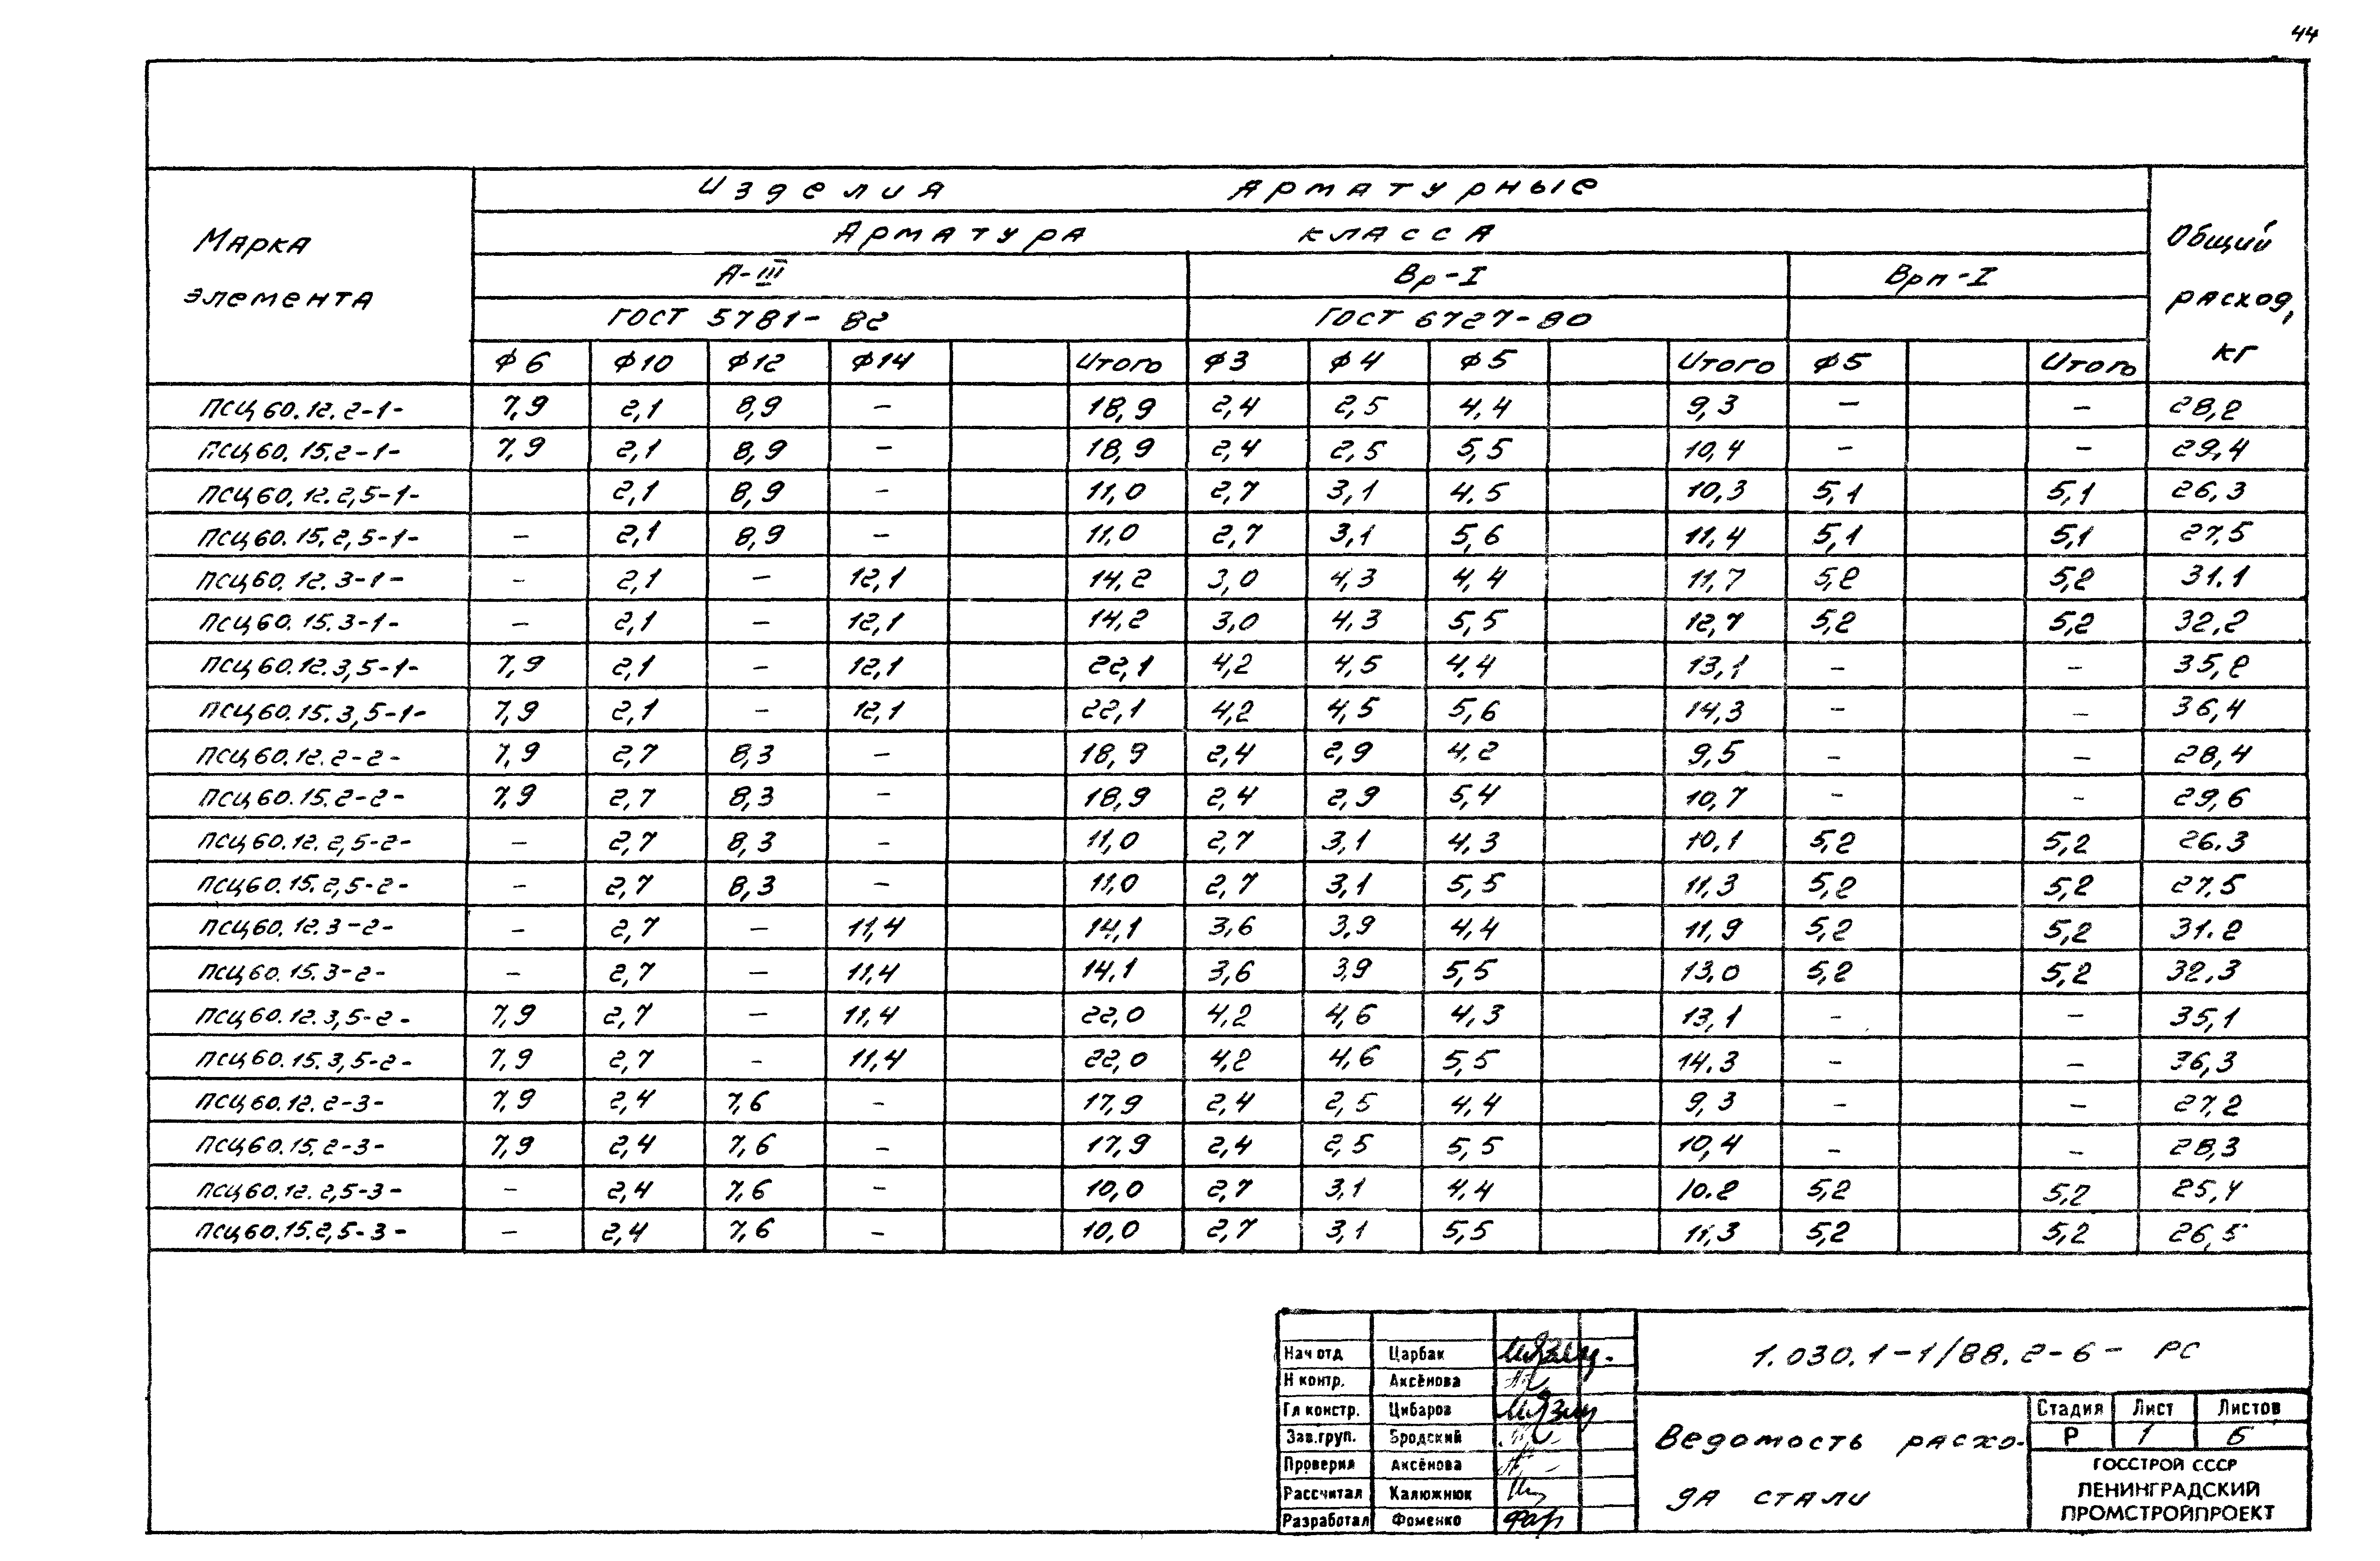 44
Изделия Арматурные
Арматура класса
Марка элемента
Общий расход, кг
А-III Вр-I Врп-I
ГОСТ 5781-82 ГОСТ 6727-80
Ф6 Ф10 Ф12 Ф14 Итого Ф3 Ф4 Ф5 Итого Ф5 Итого
ПСЦ60.12.2-1- 7,9 2,1 8,9 – 18,9 2,4 2,5 4,4 9,3 – – 28,2
ПСЦ60.15.2-1- 7,9 2,1 8,9 – 18,9 2,4 2,5 5,5 10,4 – – 29,4
ПСЦ60.12.2,5-1- 2,1 8,9 – 11,0 2,7 3,1 4,5 10,3 5,1 5,1 26,3
ПСЦ60.15.2,5-1- – 2,1 8,9 – 11,0 2,7 3,1 5,6 11,4 5,1 5,1 27,5
ПСЦ60.12.3-1- – 2,1 – 12,1 14,2 3,0 4,3 4,4 11,7 5,2 5,2 31.1
ПСЦ60.15.3-1- – 2,1 – 12,1 14,2 3,0 4,3 5,5 12,7 5,2 5,2 32,2
ПСЦ60.12.3,5-1- 7,9 2,1 – 12,1 22,1 4,2 4,5 4,4 13,1 – – 35,2
ПСЦ60.15.3,5-1- 7,9 2,1 – 12,1 22,1 4,2 4,5 5,6 14,3 – – 36,4
ПСЦ60.12.2-2- 7,9 2,7 8,3 – 18,9 2,4 2,9 4,2 9,5 – – 28,4
ПСЦ60.15.2-2- 7,9 2,7 8,3 – 18,9 2,4 2,9 5,4 10,7 – – 29,6
ПСЦ60.12.2,5-2- – 2,7 8,3 – 11,0 2,7 3,1 4,3 10,1 5,2 5,2 26.3
ПСЦ60.15.2,5-2- – 2,7 8,3 – 11,0 2,7 3,1 5,5 11,3 5,2 5,2 27.5
ПСЦ60.12.3-2- – 2,7 – 11,4 14,1 3,6 3,9 4,4 11,9 5,2 5,2 31.2
ПСЦ60.15.3-2- – 2,7 – 11,4 14,1 3,6 3,9 5,5 13,0 5,2 5,2 32.3
ПСЦ60.12.3,5-2- 7,9 2,7 – 11,4 22,0 4,2 4,6 4,3 13,1 – – 35,1
ПСЦ60.15.3,5-2- 7,9 2,7 – 11,4 22,0 4,2 4,6 5,5 14.3 – – 36,3
ПСЦ60.12.2-3- 7,9 2,4 7,6 – 17,9 2,4 2,5 4,4 9,3 – – 27,2
ПСЦ60.15.2-3- 7,9 2,4 7,6 – 17,9 2,4 2,5 5,5 10,4 – – 28,3
ПСЦ60.12.2,5-3- – 2,4 7,6 – 10,0 2,7 3,1 4,4 10.2 5,2 5,2 25,4
ПСЦ60.15.2,5-3- – 2,4 7,6 – 10,0 2,7 3,1 5,5 11,3 5,2 5,2 26,5
Нач отд Царбак
Н контр. Аксёнова
Гл констр. Цибаров
Зав.груп. Бродский
Проверил Аксёнова
Рассчитал Калюжнюк
Разработал Фоменко
1.030.1-1/88.2-6- РС
Ведомость расхо-
да стали
Стадия Лист Листов
Р 1 6
ГОССТРОЙ СССР
ЛЕНИНГРАДСКИЙ
ПРОМСТРОЙПРОЕКТ